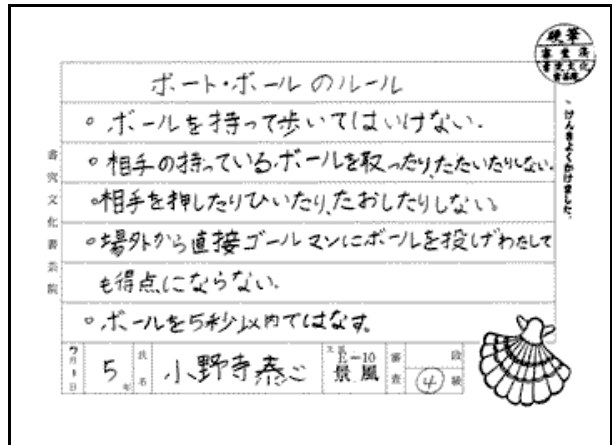 硬筆
審査済
ポート・ボールのルール
。ボールを持って歩いてはいけない.
。相手の持っているボールを取ったり,たたいたりしない.
。相手を押したりひいたり,たおしたりしない。
。場外から直接ゴールマンにボールを投げわたして
も得点にならない.
。ボールを5秒以内ではなす。
書究文化書芸院
げんきよくかけました.
5年
氏名
小野寺
E-10
景風
審査
4
段級